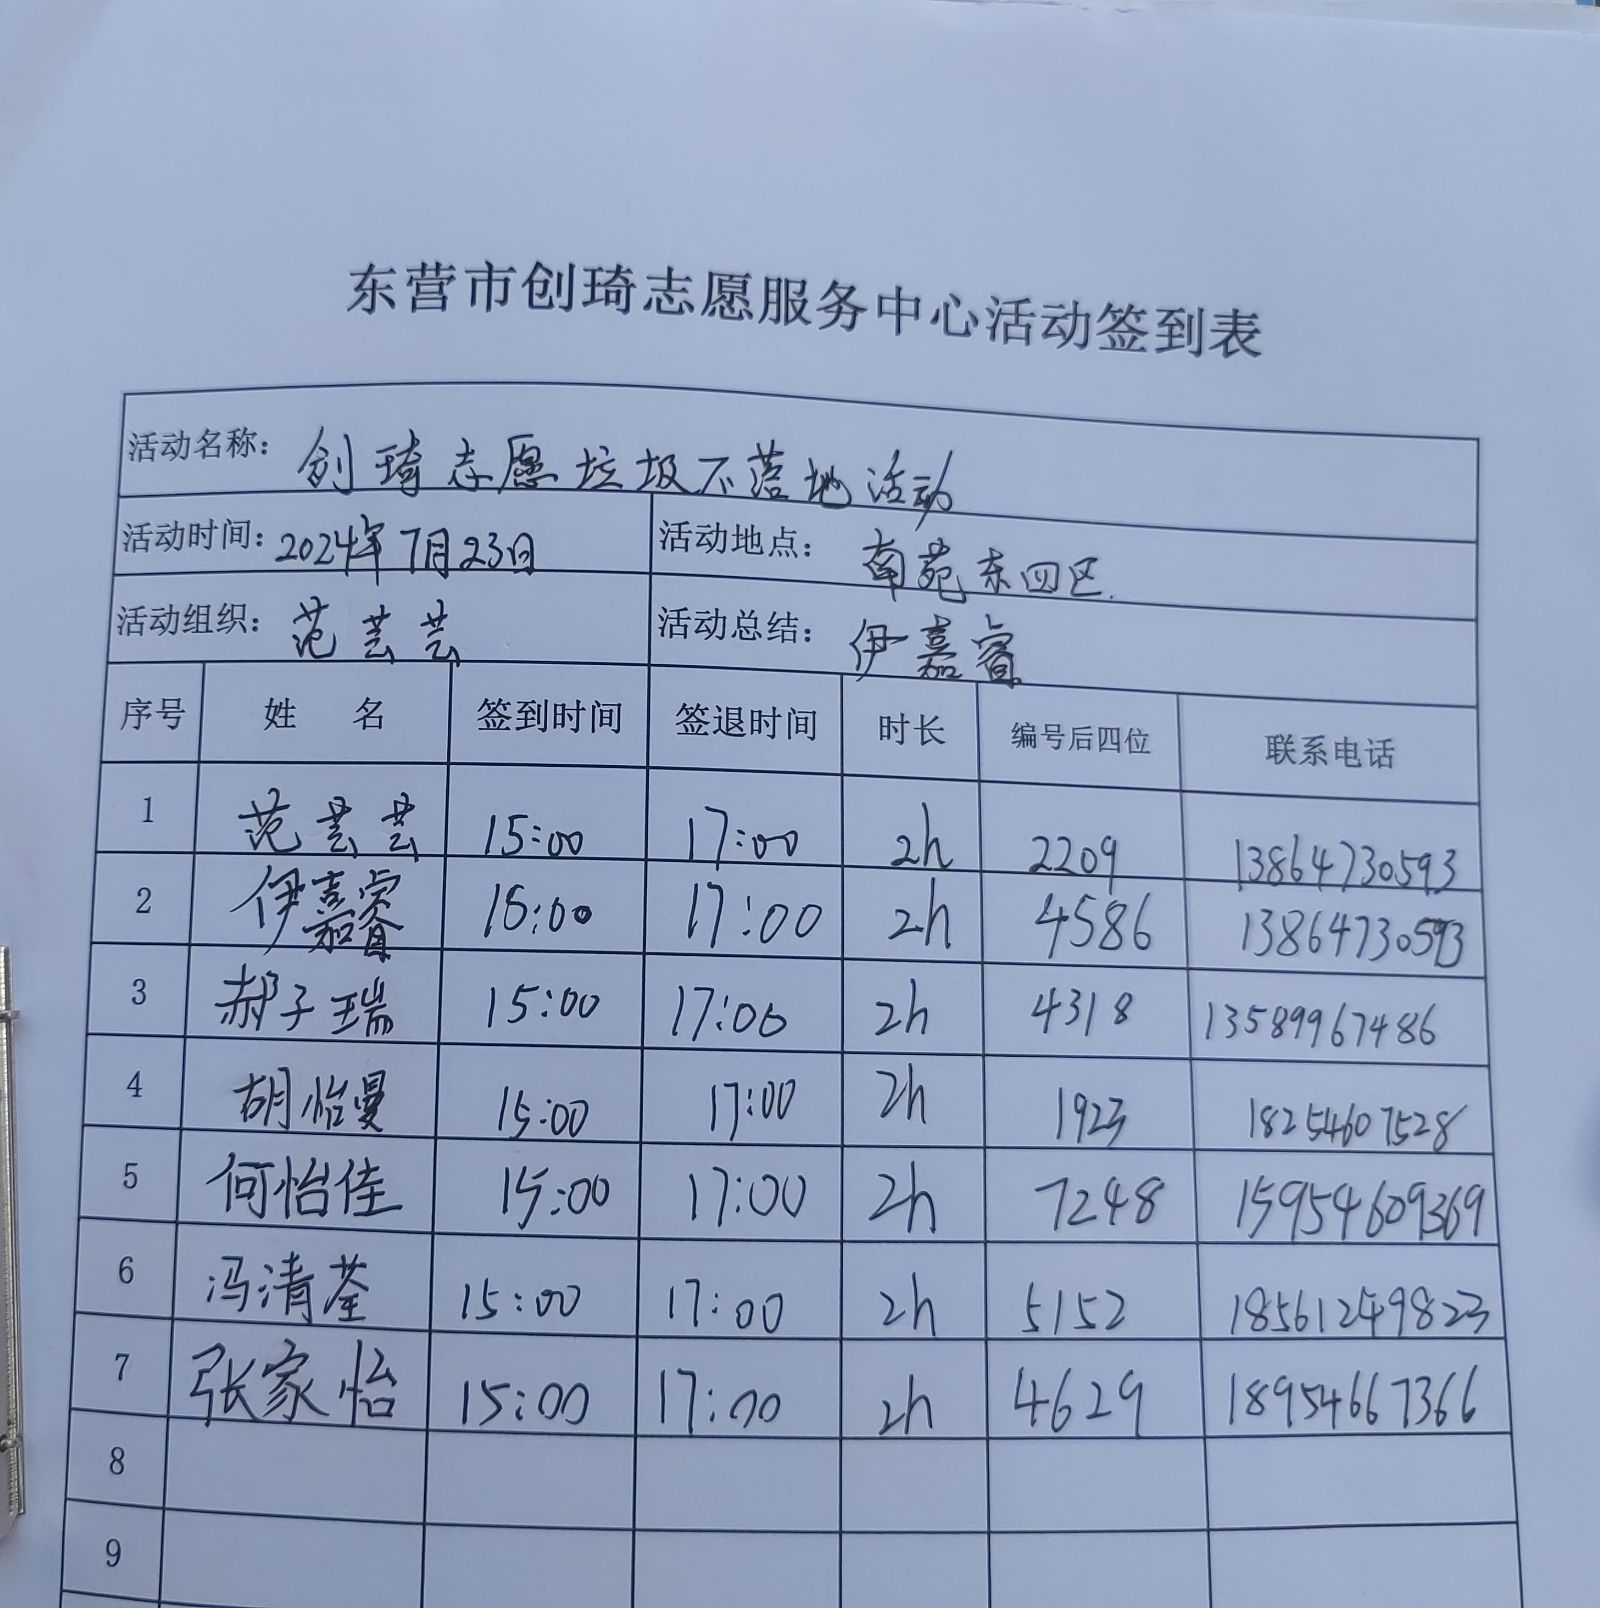 东营市创琦志愿服务中心活动签到表
活动名称: 创琦志愿垃圾不落地活动
活动时间: 2024年7月23日 活动地点: 南苑东四区
活动组织: 范芸芸 活动总结: 伊嘉睿
序号 姓名 签到时间 签退时间 时长 编号后四位 联系电话
1 范芸芸 15:00 17:00 2h 2209 13864730593
2 伊嘉睿 15:00 17:00 2h 4586 13864730593
3 郝子瑞 15:00 17:00 2h 4318 13589967486
4 胡怡曼 15:00 17:00 2h 1923 18254607528
5 何怡佳 15:00 17:00 2h 7248 15954609369
6 冯清荃 15:00 17:00 2h 5152 18561249823
7 张家怡 15:00 17:00 2h 4629 18954667366
8
9